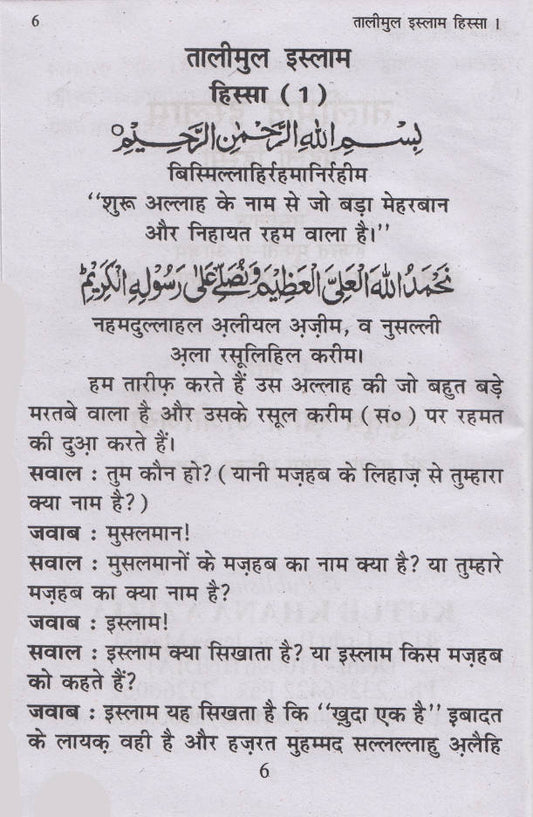 6 तालीमुल इस्लाम हिस्सा ।
तालीमुल इस्लाम
हिस्सा (1)
بِسْمِ اللهِ الرَّحْمٰنِ الرَّحِيْمِ
बिस्मिल्लाहिर्रहमानिर्रहीम
‘‘शुरू अल्लाह के नाम से जो बड़ा मेहरबान
और निहायत रहम वाला है।’’
نَحْمَدُ اللهَ الْعَلِيَّ الْعَظِيْمَ وَنُصَلِّيْ عَلٰى رَسُوْلِهِ الْكَرِيْمِ
नहमदुल्लाहल अ़लीयल अज़ीम, व नुसल्ली
अ़ला रसूलिहिल करीम।
हम तारीफ़ करते हैं उस अल्लाह की जो बहुत बड़े
मरतबे वाला है और उसके रसूल करीम (सं०) पर रहमत
की दुआ़ करते हैं।
सवाल : तुम कौन हो? (यानी मज़हब के लिहाज़ से तुम्हारा
क्या नाम है?)
जवाब : मुसलमान!
सवाल : मुसलमानों के मज़हब का नाम क्या है? या तुम्हारे
मज़हब का क्या नाम है?
जवाब : इस्लाम!
सवाल : इस्लाम क्या सिखाता है? या इस्लाम किस मज़हब
को कहते हैं?
जवाब : इस्लाम यह सिखता है कि ‘‘ख़ुदा एक है’’ इबादत
के लायक़ वही है और हज़रत मुहम्मद सल्लल्लाहु अ़लैहि
6